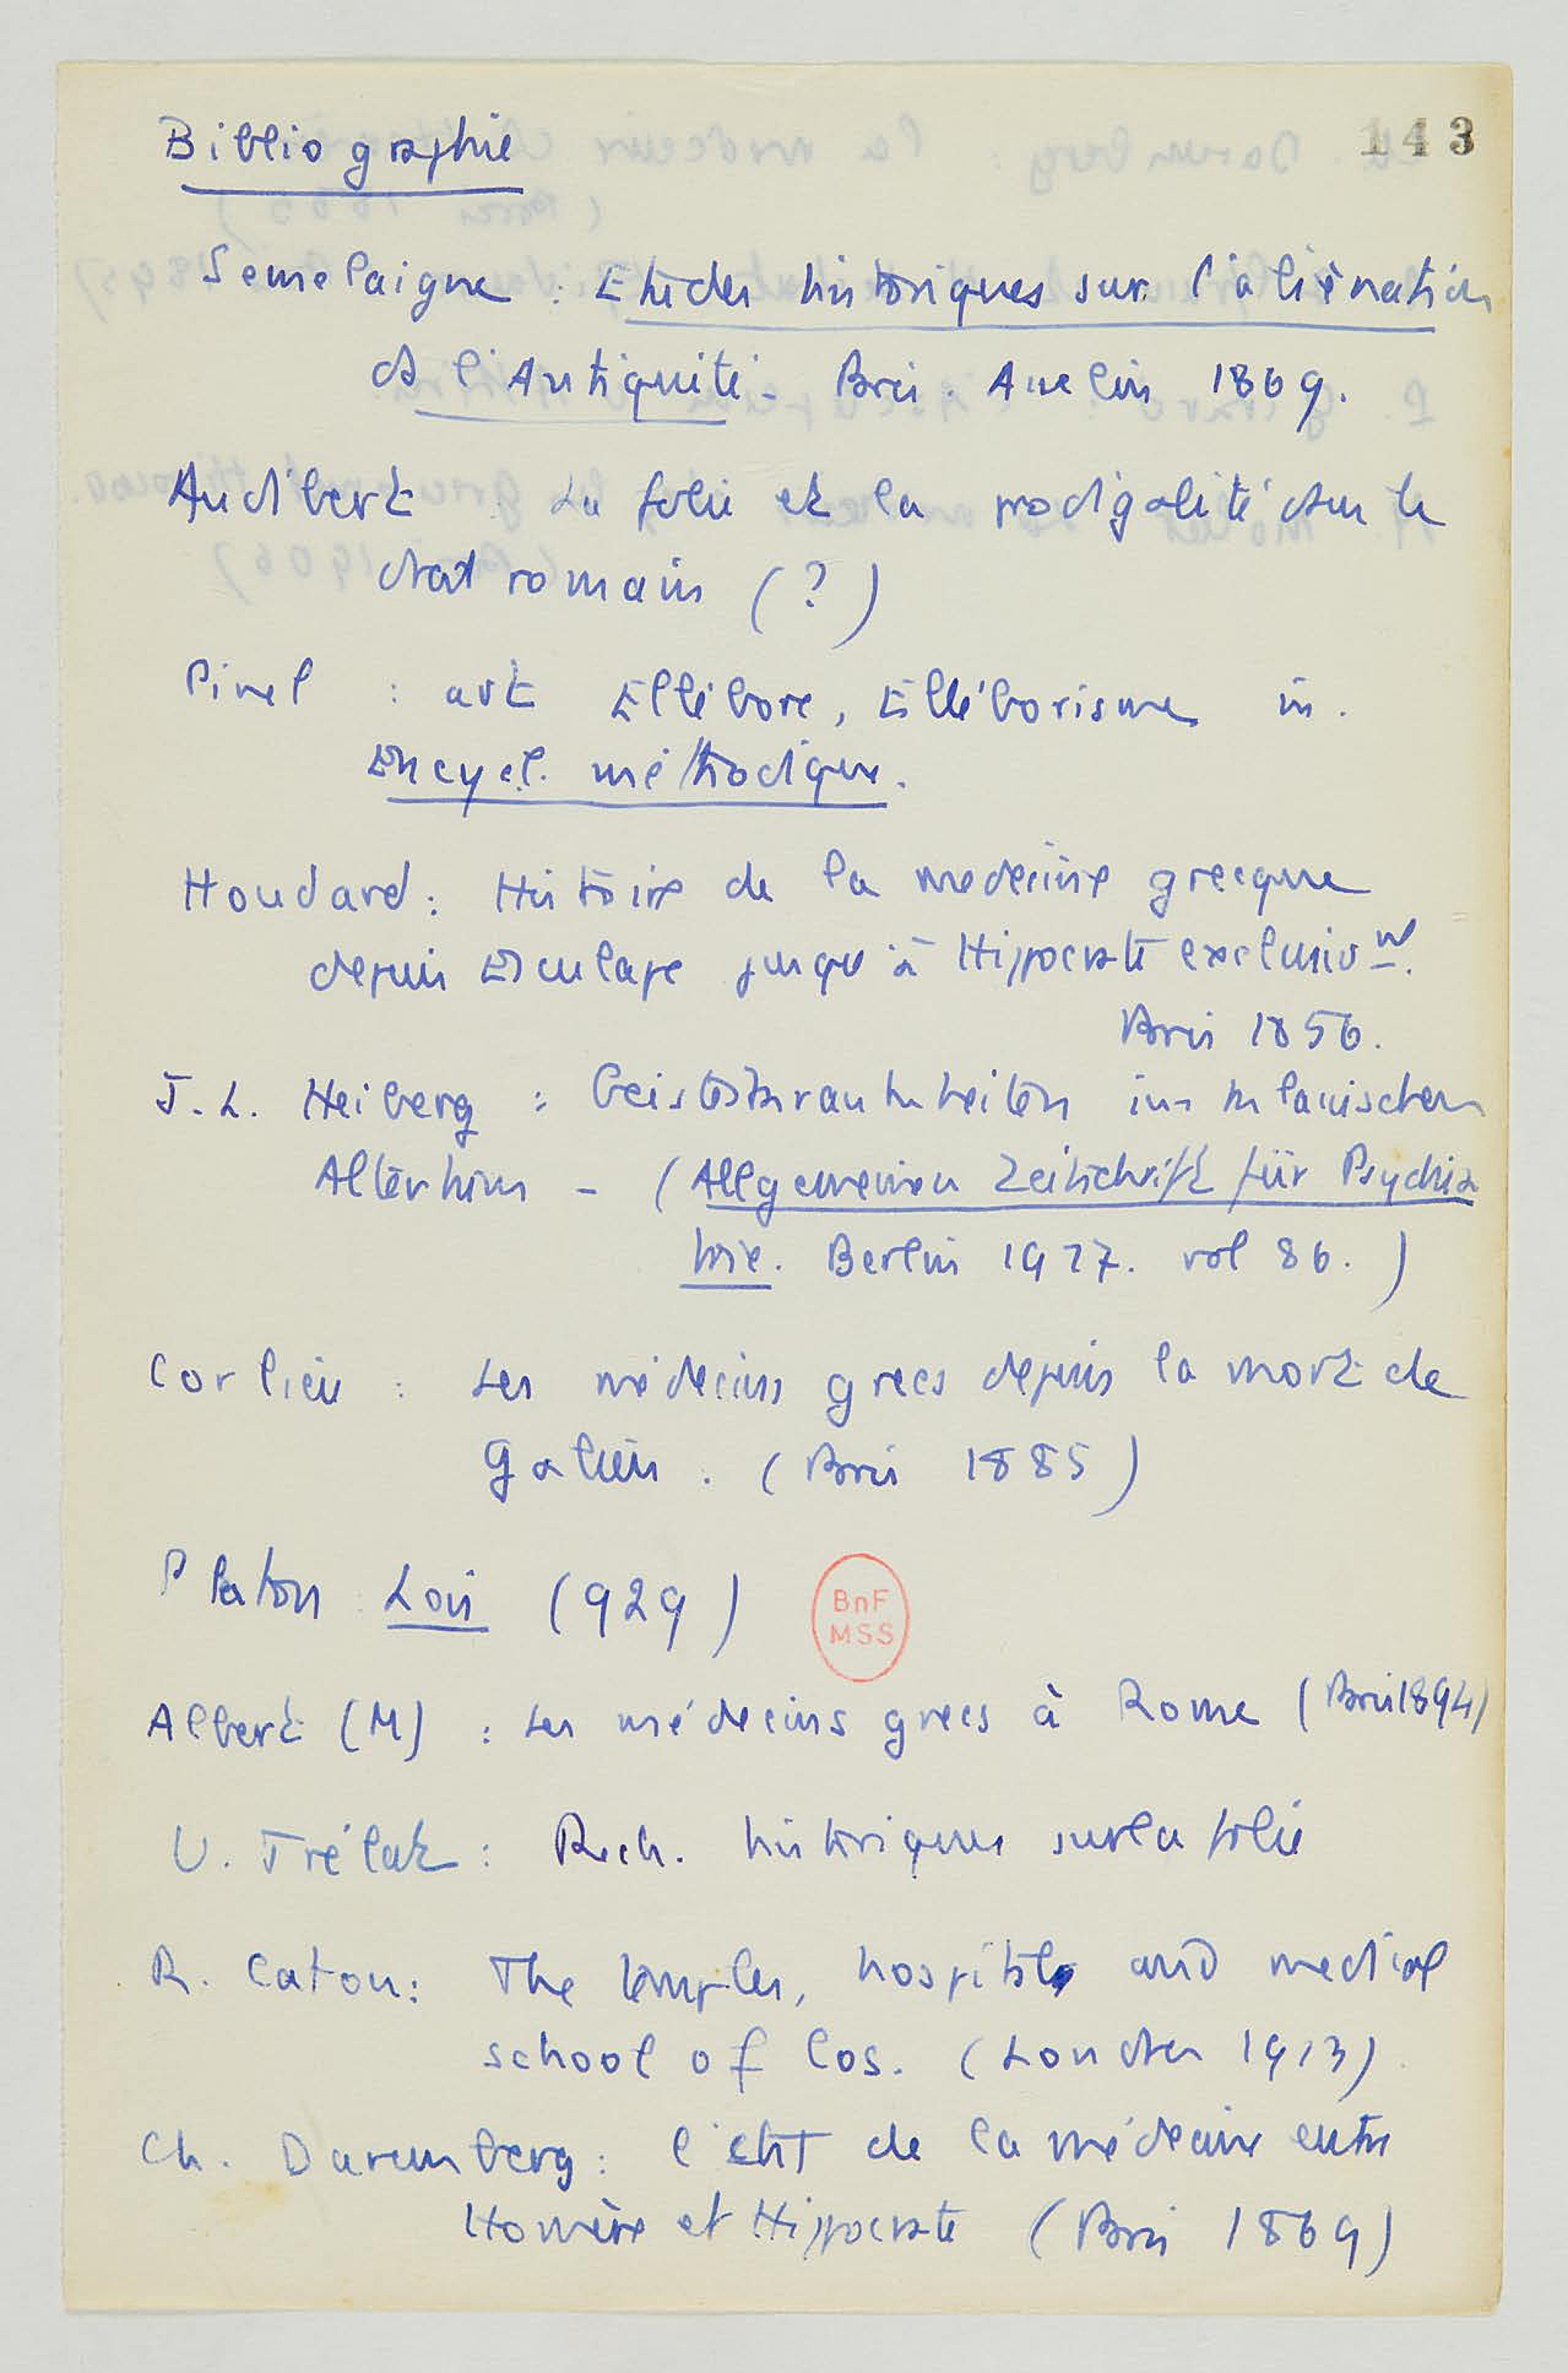 143
Bibliographie
Semelaigne : Etudes historiques sur l'aliénation
ds l'Antiquité - Paris. Asselin 1869.
Audibert : La folie et la prodigalité dans le
droit romain (?)
Pinel : art Ellébore, Elléborisme in.
Encycl. méthodique.
Houdard : Histoire de la medecine grecque
depuis Esculape jusqu'à Hippocrate exclusivt.
Paris 1856.
J.L. Heiberg : Geisteskrankheiten im klassischen
Altertum - (Allgemeinen Zeitschrift für Psychia
trie. Berlin 1927. vol 86.)
Corlieu : Les médecins grecs depuis la mort de
Galien. (Paris 1885)
Platon Lois (929)
BnF
MSS
Albert (M) : Les médecins grecs à Rome (Paris 1894)
U. Trélat : Rech. historiques sur la folie
R. Caton : The temples, hospitals and medical
school of Cos. (Londres 1913)
Ch. Daremberg : l'état de la médecine entre
Homère et Hippocrate (Paris 1869)